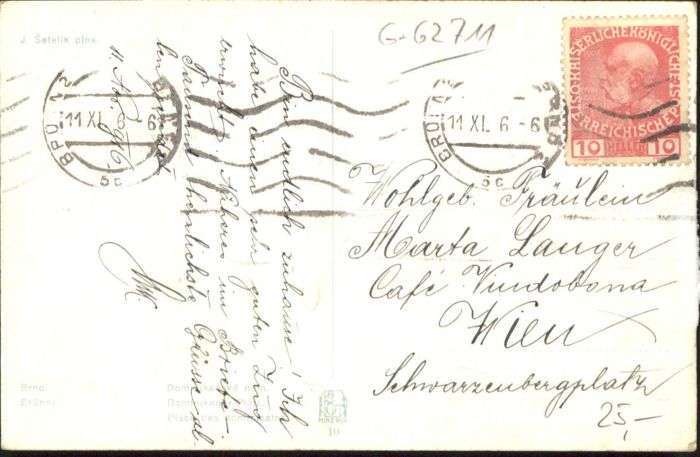 J. Šetelík pinx.
G-62711
KAISERLICHEKÖNIGLICHE
ÖSTERREICHISCHE POST
10 HELLER 10
11 XI. 6-6
5c
BRÜNN
11 XI. 6-6
5c
Bin endlich zuhause! Ich
habe einen sehr guten Zug
Näheres im Briefe.
Tausend herzlichste Grüsse al-
len
Wohlgeb. Fräulein
Marta Langer
Café Vindobona
Wien
Schwarzenbergplatz
25,-
Brno:
Brünn:
MINERVA
10